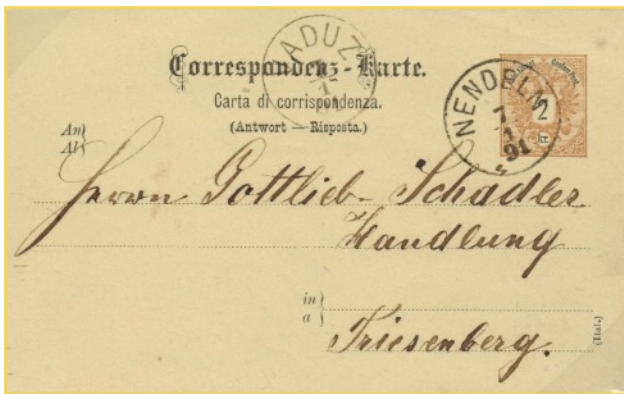 VADUZ
Correspondenz-Karte.
Carta di corrispondenza.
(Antwort — Risposta.)
NENDELN
7
1
91
2
An
Al
Herrn Gottlieb Schädler
Handlung
in
a
Triesenberg.
(Ital.)